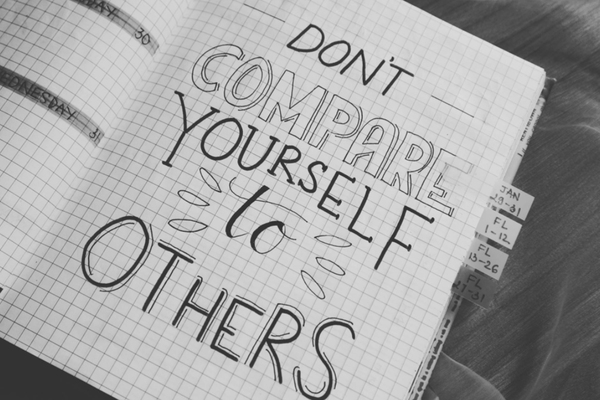 DAY 30
WEDNESDAY 31
DON'T
COMPARE
YOURSELF
to
OTHERS
JAN
29-31
FL
1-12
FL
13-26
FL